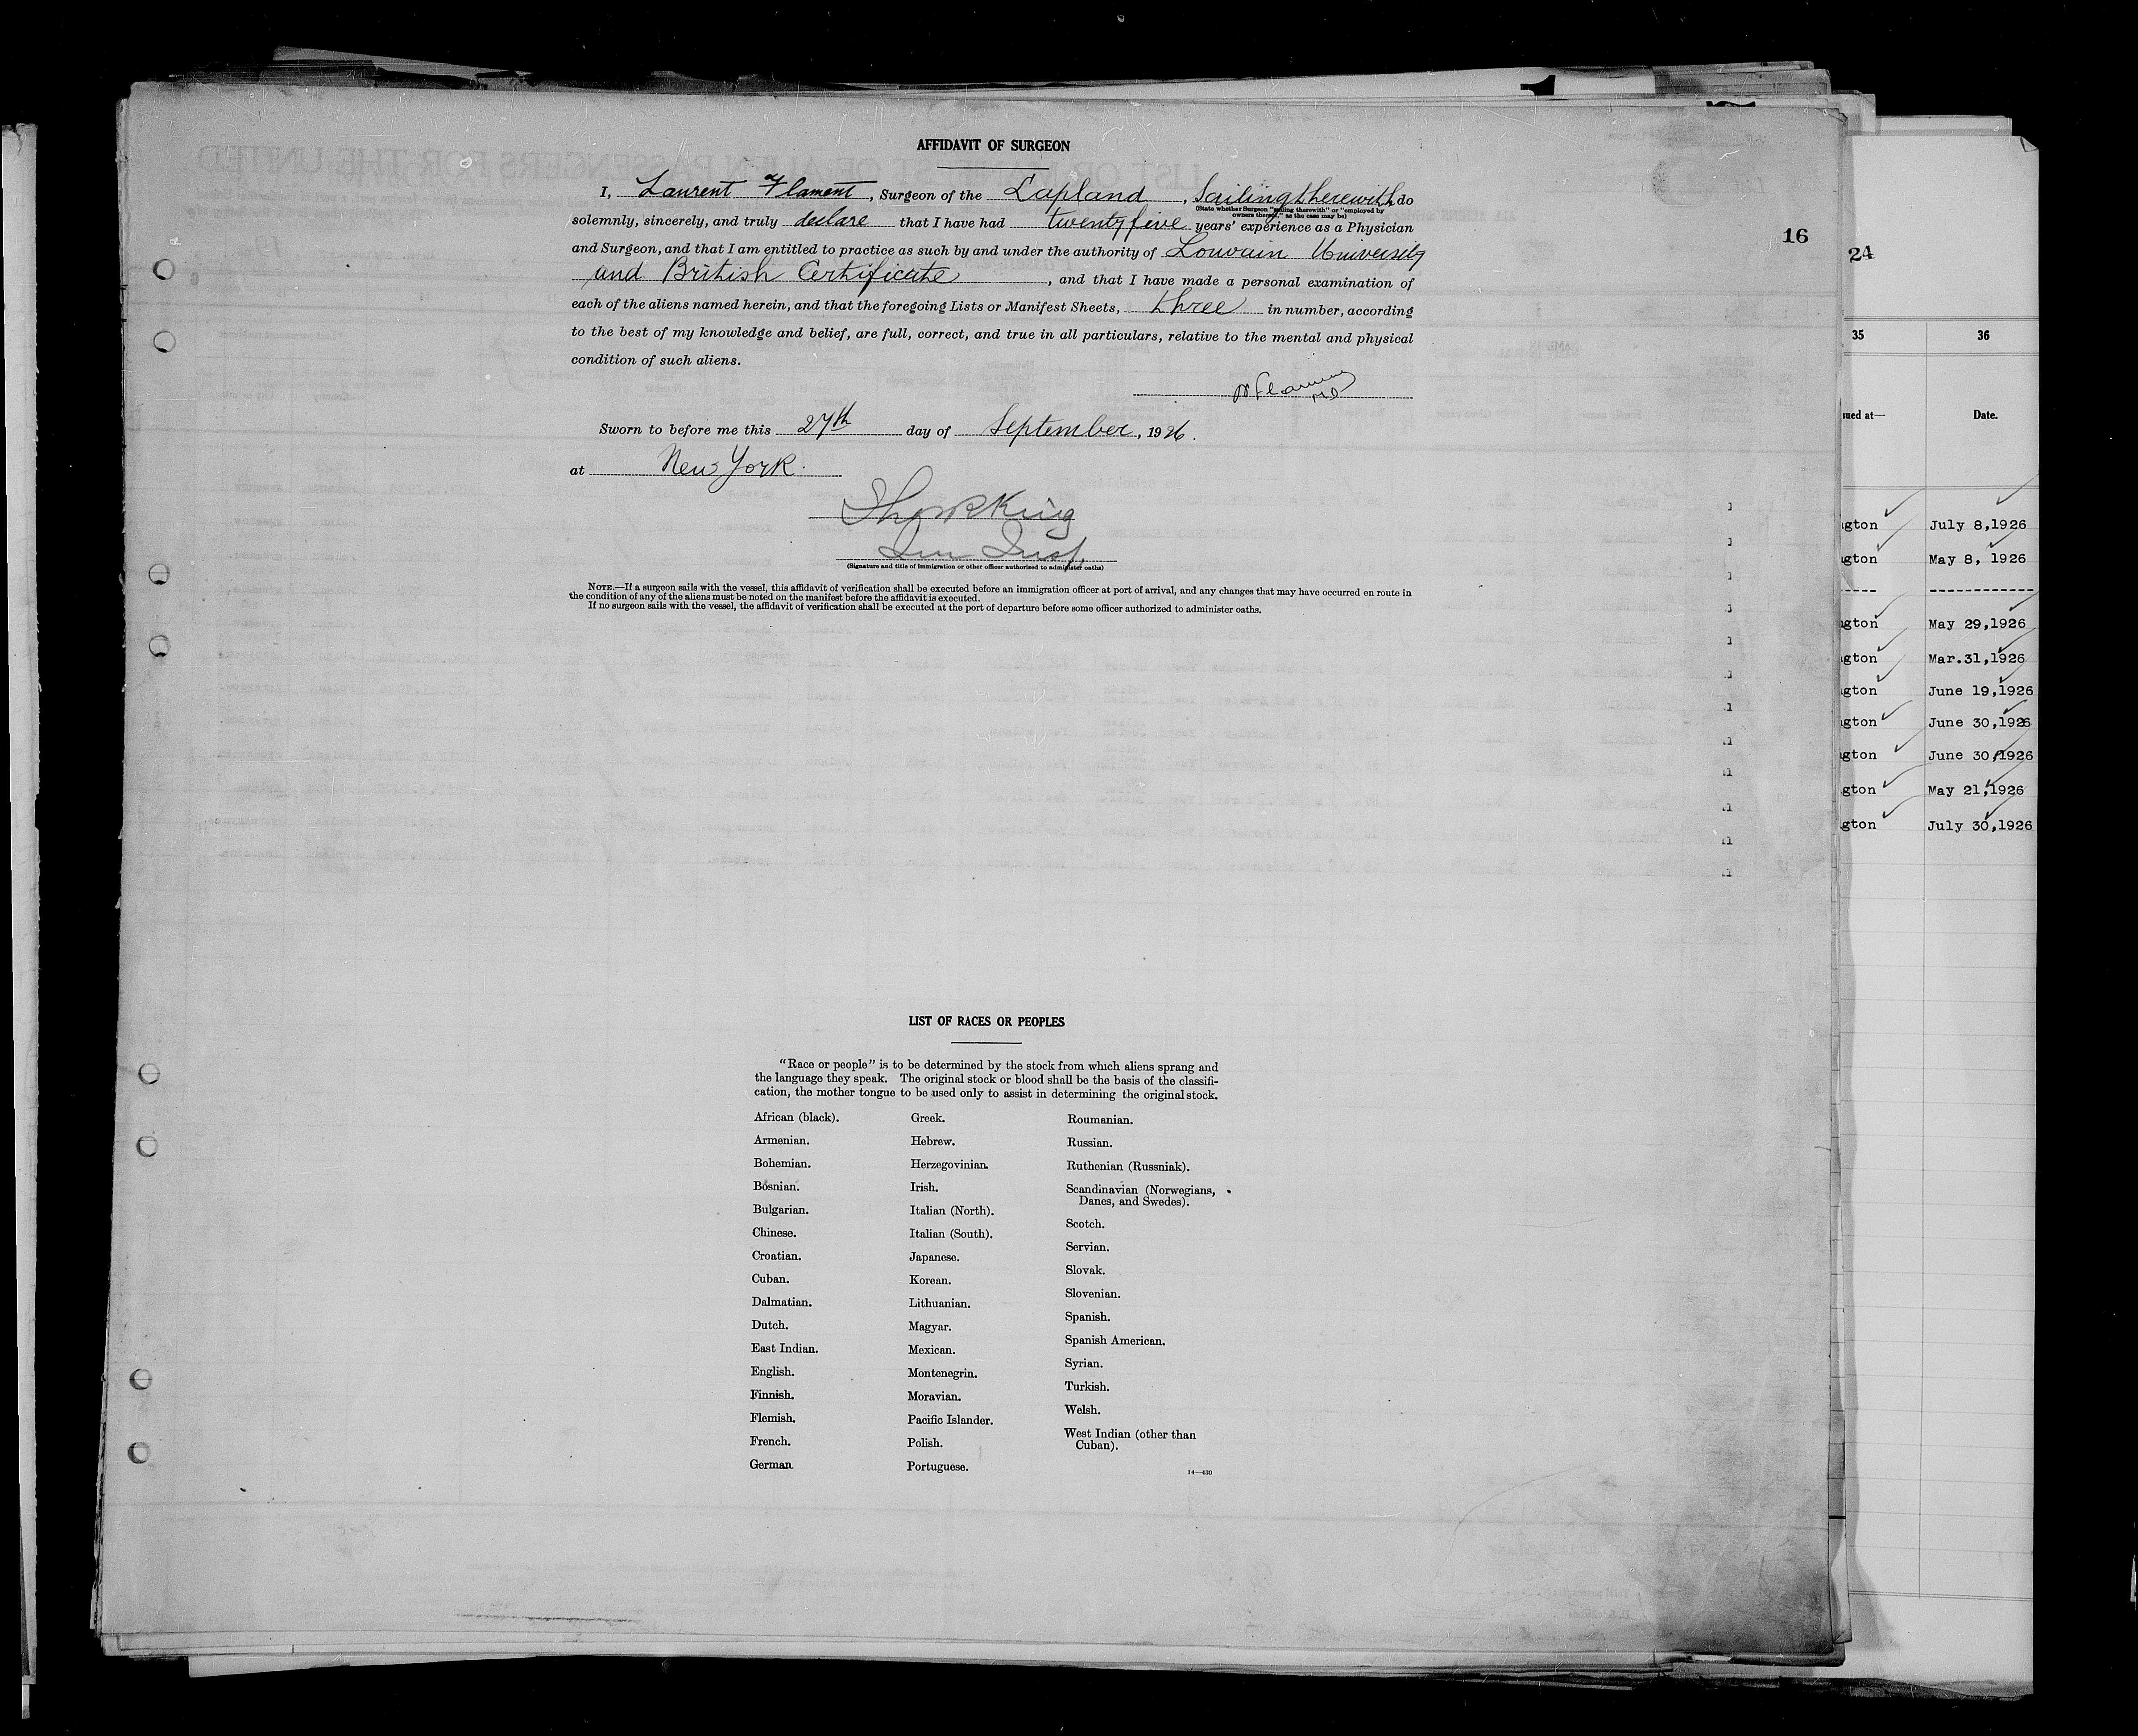 AFFIDAVIT OF SURGEON
I, Laurent Flament, Surgeon of the Lapland, Sailing therewith do
(State whether Surgeon "sailing therewith" or "employed by
owners thereof," as the case may be)
solemnly, sincerely, and truly declare that I have had twenty five years' experience as a Physician
and Surgeon, and that I am entitled to practice as such by and under the authority of Louvain University
and British Certificate, and that I have made a personal examination of
each of the aliens named herein, and that the foregoing Lists or Manifest Sheets, three in number, according
to the best of my knowledge and belief, are full, correct, and true in all particulars, relative to the mental and physical
condition of such aliens.
Sworn to before me this 27th day of September, 1926.
at New York.
King
(Signature and title of immigration or other officer authorized to administer oaths)
NOTE.—If a surgeon sails with the vessel, this affidavit of verification shall be executed before an immigration officer at port of arrival, and any changes that may have occurred en route in
the condition of any of the aliens must be noted on the manifest before the affidavit is executed.
If no surgeon sails with the vessel, the affidavit of verification shall be executed at the port of departure before some officer authorized to administer oaths.
LIST OF RACES OR PEOPLES
"Race or people" is to be determined by the stock from which aliens sprang and
the language they speak. The original stock or blood shall be the basis of the classifi-
cation, the mother tongue to be used only to assist in determining the original stock.
African (black).
Armenian.
Bohemian.
Bosnian.
Bulgarian.
Chinese.
Croatian.
Cuban.
Dalmatian.
Dutch.
East Indian.
English.
Finnish.
Flemish.
French.
German
Greek.
Hebrew.
Herzegovinian.
Irish.
Italian (North).
Italian (South).
Japanese.
Korean.
Lithuanian.
Magyar.
Mexican.
Montenegrin.
Moravian.
Pacific Islander.
Polish.
Portuguese.
Roumanian.
Russian.
Ruthenian (Russniak).
Scandinavian (Norwegians,
Danes, and Swedes).
Scotch.
Servian.
Slovak.
Slovenian.
Spanish.
Spanish American.
Syrian.
Turkish.
Welsh.
West Indian (other than
Cuban).
14—430
16
24
35 36
sued at— Date.
gton July 8,1926
gton May 8, 1926
gton May 29,1926
gton Mar.31,1926
gton June 19,1926
gton June 30,1926
gton June 30,1926
gton May 21,1926
gton July 30,1926